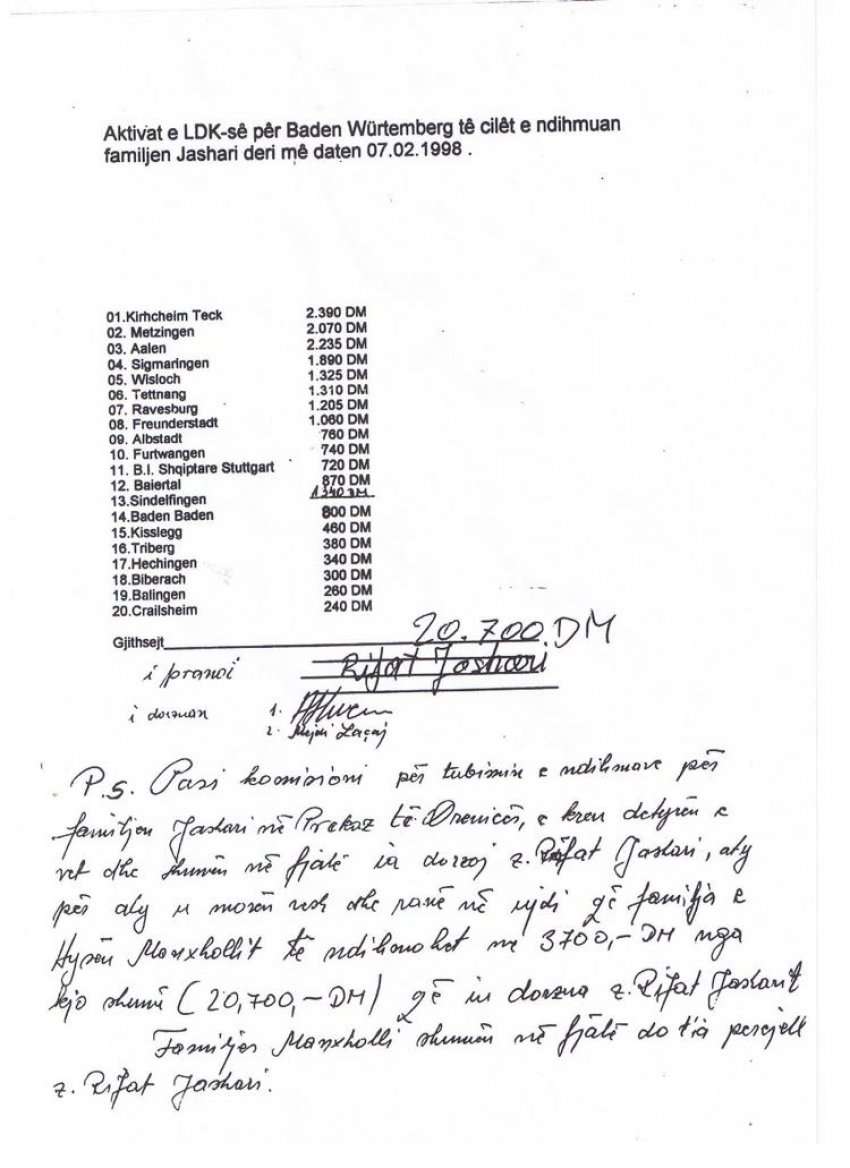 Aktivat e LDK-sê pêr Baden Würtemberg tê cilêt e ndihmuan
familjen Jashari deri mê daten 07.02.1998 .
01.Kirhcheim Teck 2.390 DM
02. Metzingen 2.070 DM
03. Aalen 2.235 DM
04. Sigmaringen 1.890 DM
05. Wisloch 1.325 DM
06. Tettnang 1.310 DM
07. Ravesburg 1.205 DM
08. Freunderstadt 1.060 DM
09. Albstadt 760 DM
10. Furtwangen 740 DM
11. B.I. Shqiptare Stuttgart 720 DM
12. Baiertal 870 DM
13.Sindelfingen 1340 DM
14.Baden Baden 800 DM
15.Kisslegg 460 DM
16.Triberg 380 DM
17.Hechingen 340 DM
18.Biberach 300 DM
19.Balingen 260 DM
20.Crailsheim 240 DM
Gjithsejt 20.700 DM
i pranoi Rifat Jashari
i dorzuan 1.
2. Mejdi Laçaj
P.S. Pasi komisioni për tubimin e ndihmave për
familjen Jashari në Prekaz të Drenicës, e kreu detyrën e
vet dhe shumën në fjalë ia dorzoj z. Rifat Jashari, aty
për aty u morën vesh dhe ranë në ujdi që familja e
Hysën Manxhollit të ndihmohet me 3700,- DM nga
kjo shumë (20,700,- DM) që iu dorzua z. Rifat Jasharit
Familjes Manxholli shumën në fjalë do t'ia percjell
z. Rifat Jashari.